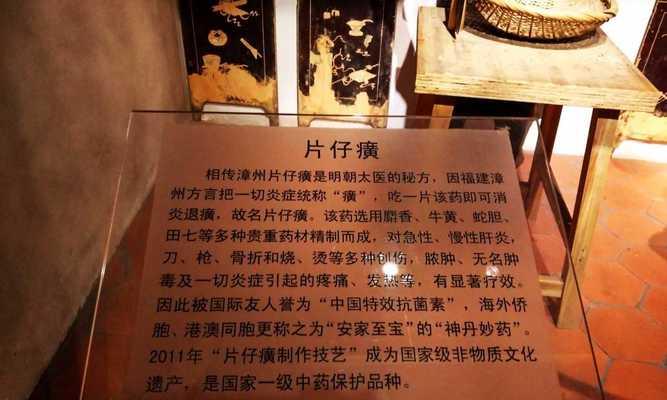 片仔癀
相传漳州片仔癀是明朝太医的秘方，因福建漳
州方言把一切炎症统称“癀”，吃一片该药即可消
炎退癀，故名片仔癀。该药选用麝香、牛黄、蛇胆、
田七等多种贵重药材精制而成，对急性、慢性肝炎，
刀、枪、骨折和烧、烫等多种创伤，脓肿、无名肿
毒及一切炎症引起的疼痛、发热等，有显著疗效。
因此被国际友人誉为“中国特效抗菌素”，海外侨
胞、港澳同胞更称之为“安家至宝”的“神丹妙药”。
2011年“片仔癀制作技艺”成为国家级非物质文化
遗产，是国家一级中药保护品种。